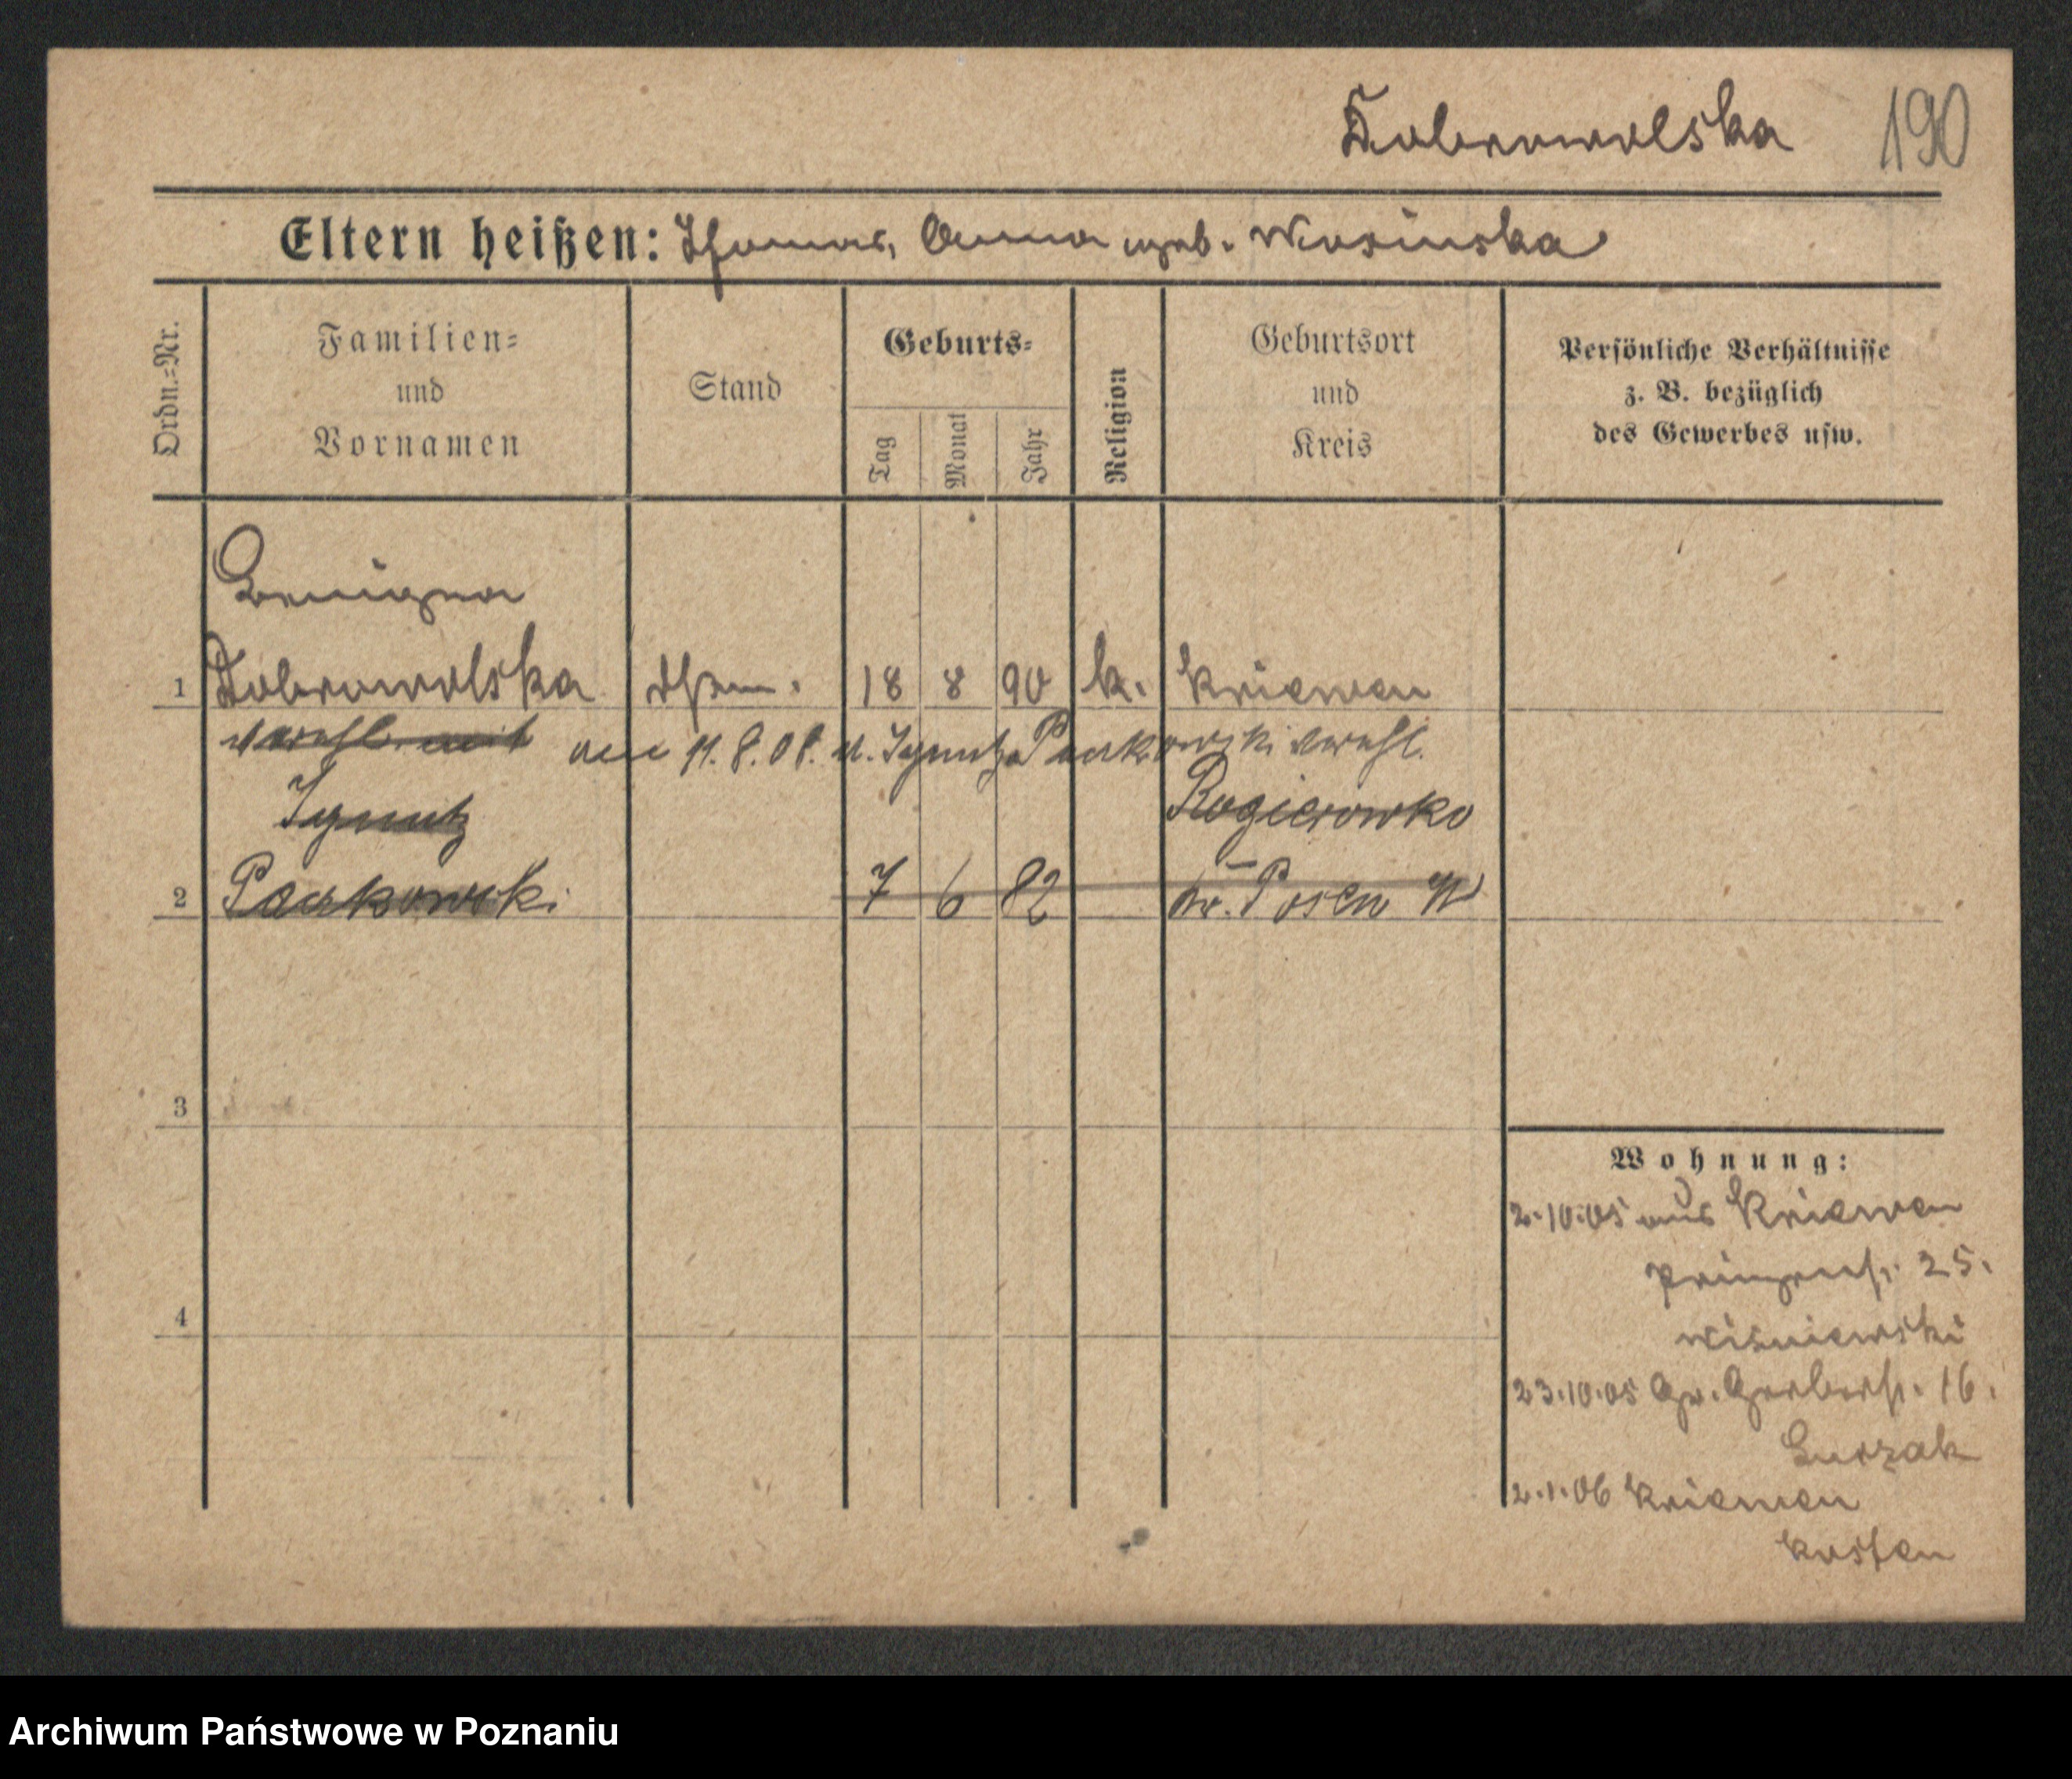 Dobrowolska 190
Eltern heißen: Thomas, Anna geb. Wosinska
Ordn.=Nr.
Familien=
und
Vornamen
Stand
Geburts=
Tag
Monat
Jahr
Religion
Geburtsort
und
Kreis
Persönliche Verhältnisse
z. B. bezüglich
des Gewerbes usw.
Benigna
1 Dobrowolska 18 8 90 k. Kriewen
verehl. mit
am 11.8.08. m. Ignatz Packowski verehl.
Ignatz Rogierowko
2 Packowski 7 6 82 Kr. Posen W
3
4
Wohnung:
2.10.05 aus Kriewen
Prinzenstr. 25.
Wisniewski
23.10.05 Gr. Gerberstr. 16.
2.1.06 Kriewen
Kosten
Archiwum Państwowe w Poznaniu